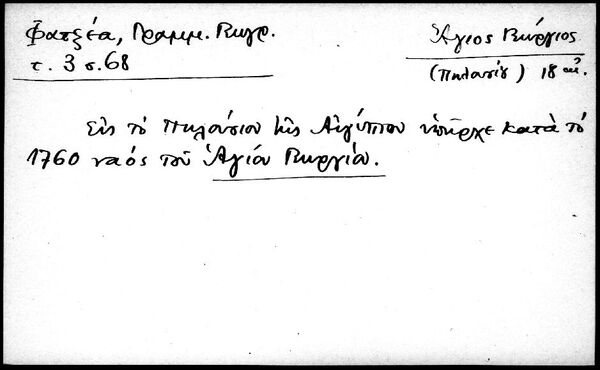 Φατζέα, Γραμμ. Γεωγρ.
τ. 3 σ. 68
Ἅγιος Γεώργιος
(Πηλουσίου) 18 αἰ.
Εἰς τὸ Πηλούσιον τῆς Αἰγύπτου ὑπῆρχε κατὰ τὸ
1760 ναὸς τοῦ Ἁγίου Γεωργίου.